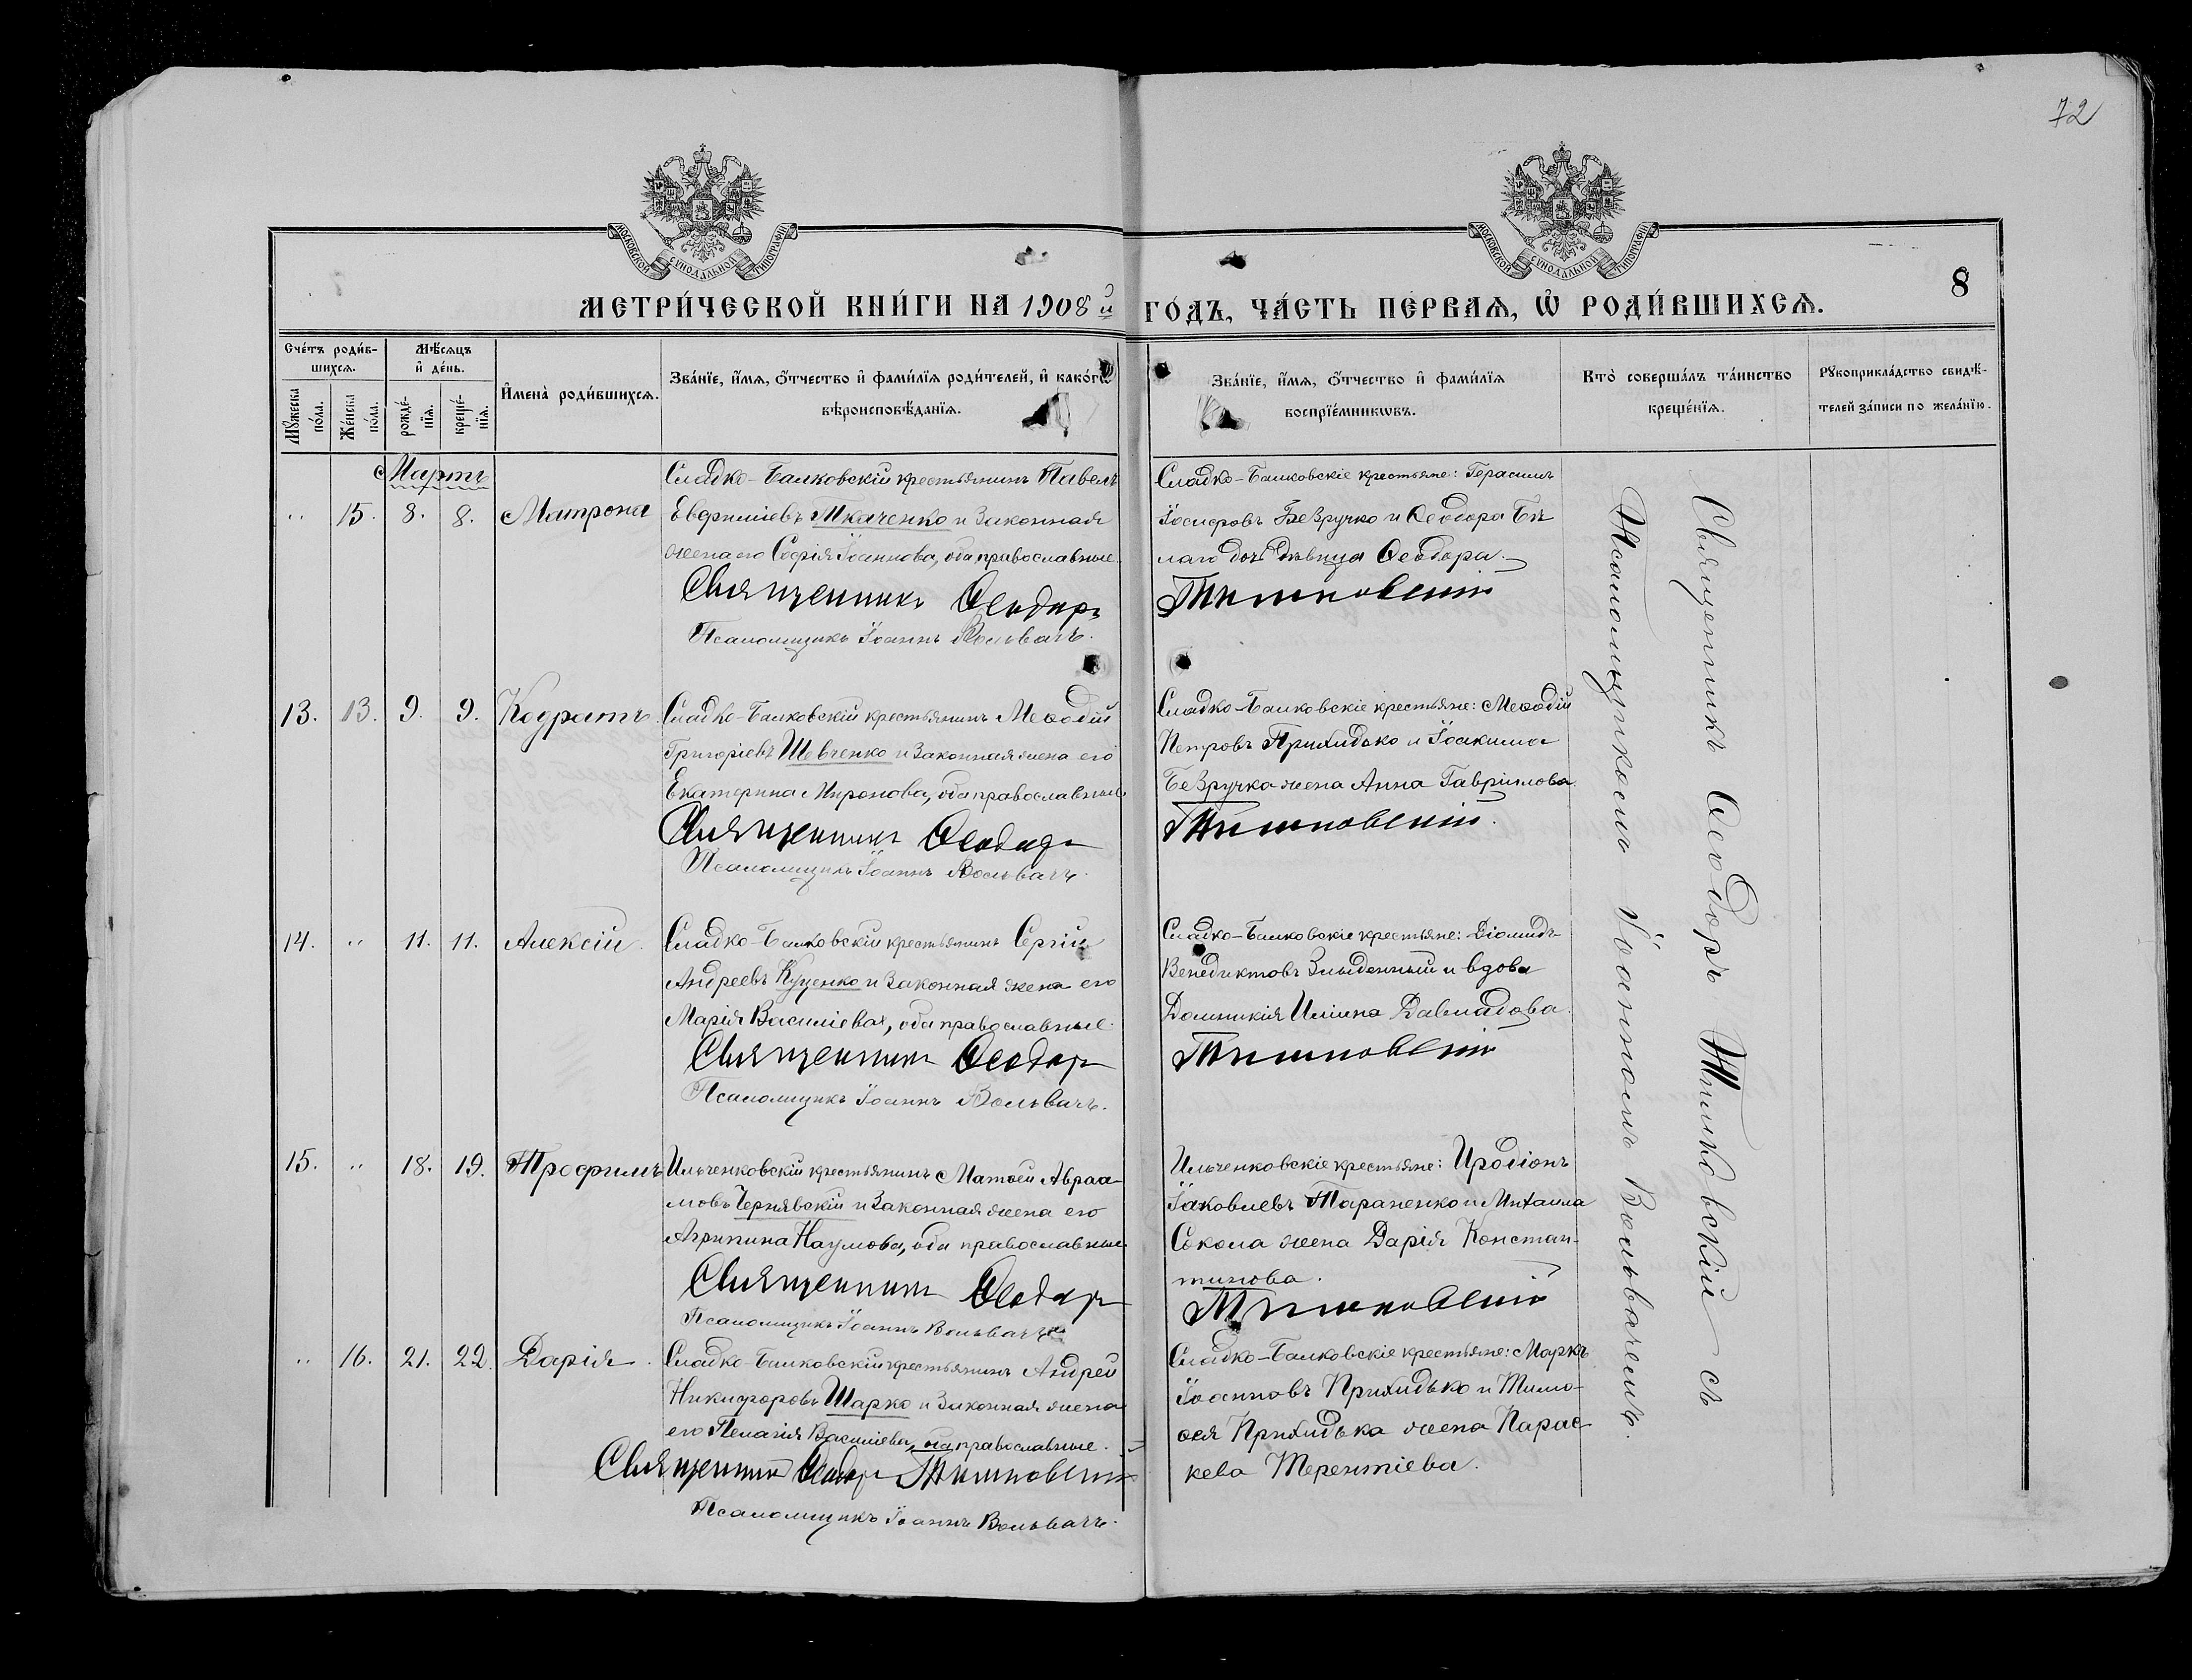 72
МОСКОВСКОЙ СУНОДАЛЬНОЙ ТИПОГРАФІИ
МОСКОВСКОЙ СУНОДАЛЬНОЙ ТИПОГРАФІИ
8
МЕТРИ́ЧЕСКОЙ КНИ́ГИ НА 1908й ГО́ДЪ, ЧА́СТЬ ПЕ́РВАѦ, Ѡ҆ РОДИ́ВШИХСѦ.
Сче́тъ роди́в-
шихсѧ.
Мꙋжеска
по́ла.
Же́нска
по́ла.
Мѣ́сѧцъ
и҆ де́нь.
рожде́-
нїѧ.
креще́-
нїѧ.
И҆мена̀ роди́вшихсѧ.
Зва́нїе, и҆́мѧ, ѻ҆́тчество и҆ фами́лїѧ роди́телей, и҆ како́гѡ
вѣроисповѣ́данїѧ.
Зва́нїе, и҆́мѧ, ѻ҆́тчество и҆ фами́лїѧ
воспрїе́мникѡвъ.
Кто̀ соверша́лъ та́инство
креще́нїѧ.
Рꙋкоприкла́дство свидѣ́-
телей за́писи по жела́нїю.
Мартъ
" 15. 8. 8. Матрона
Сладко-Балковскій крестьянинъ Павелъ
Евфиміевъ Ткаченко и законная
жена его Софія Іоаннова, оба православные.
Священникъ Ѳеодоръ Тишковскій
Псаломщикъ Іоаннъ Вольвачъ.
Сладко-Балковскіе крестьяне: Герасимъ
Іосифовъ Безручко и Ѳеодора Бѣ
лаго дочь дѣвица Ѳеодора.
13. 13. 9. 9. Кодратъ
Сладко-Балковскій крестьянинъ Меѳодій
Григоріевъ Шевченко и законная жена его
Екатерина Миронова, оба православные
Священникъ Ѳеодоръ Тишковскій.
Псаломщикъ Іоаннъ Вольвачъ.
Сладко-Балковскіе крестьяне: Меѳодій
Петровъ Прихидько и Іоакима
Безручка жена Анна Гавріилова.
14. " 11. 11. Алексій.
Сладко-Балковскій крестьянинъ Сергій
Андреевъ Куценко и законная жена его
Марія Василіева, оба православные.
Священникъ Ѳеодоръ Тишковскій
Псаломщикъ Іоаннъ Вольвачъ.
Сладко-Балковскіе крестьяне: Діомидъ
Венедиктовъ Злыденный и вдова
Домникія Иліина Давыдова.
15. " 18. 19. Трофимъ
Ильченковскій крестьянинъ Матѳей Авраа-
мовъ Чернявскій и законная жена его
Агрипина Наумова, оба православные.
Священникъ Ѳеодоръ Тишковскій
Псаломщикъ Іоаннъ Вольвачъ
Ильченковскіе крестьяне: Иродіонъ
Іаковлевъ Тараненко и Михаила
Сокола жена Дарія Констан-
тинова.
" 16. 21. 22. Дарія.
Сладко-Балковскій крестьянинъ Андрей
Никифоровъ Шарко и законная жена
его Пелагія Василіева, оба православные.
Священникъ Ѳеодоръ Тишковскій
Псаломщикъ Іоаннъ Вольвачъ.
Сладко-Балковскіе крестьяне: Маркъ
Іоанновъ Прихидько и Тимо-
ѳея Прихидька жена Парас
кева Терентіева.
Священникъ Ѳеодоръ Тишковскій съ
Псаломщикомъ Іоанномъ Вольвачемъ.